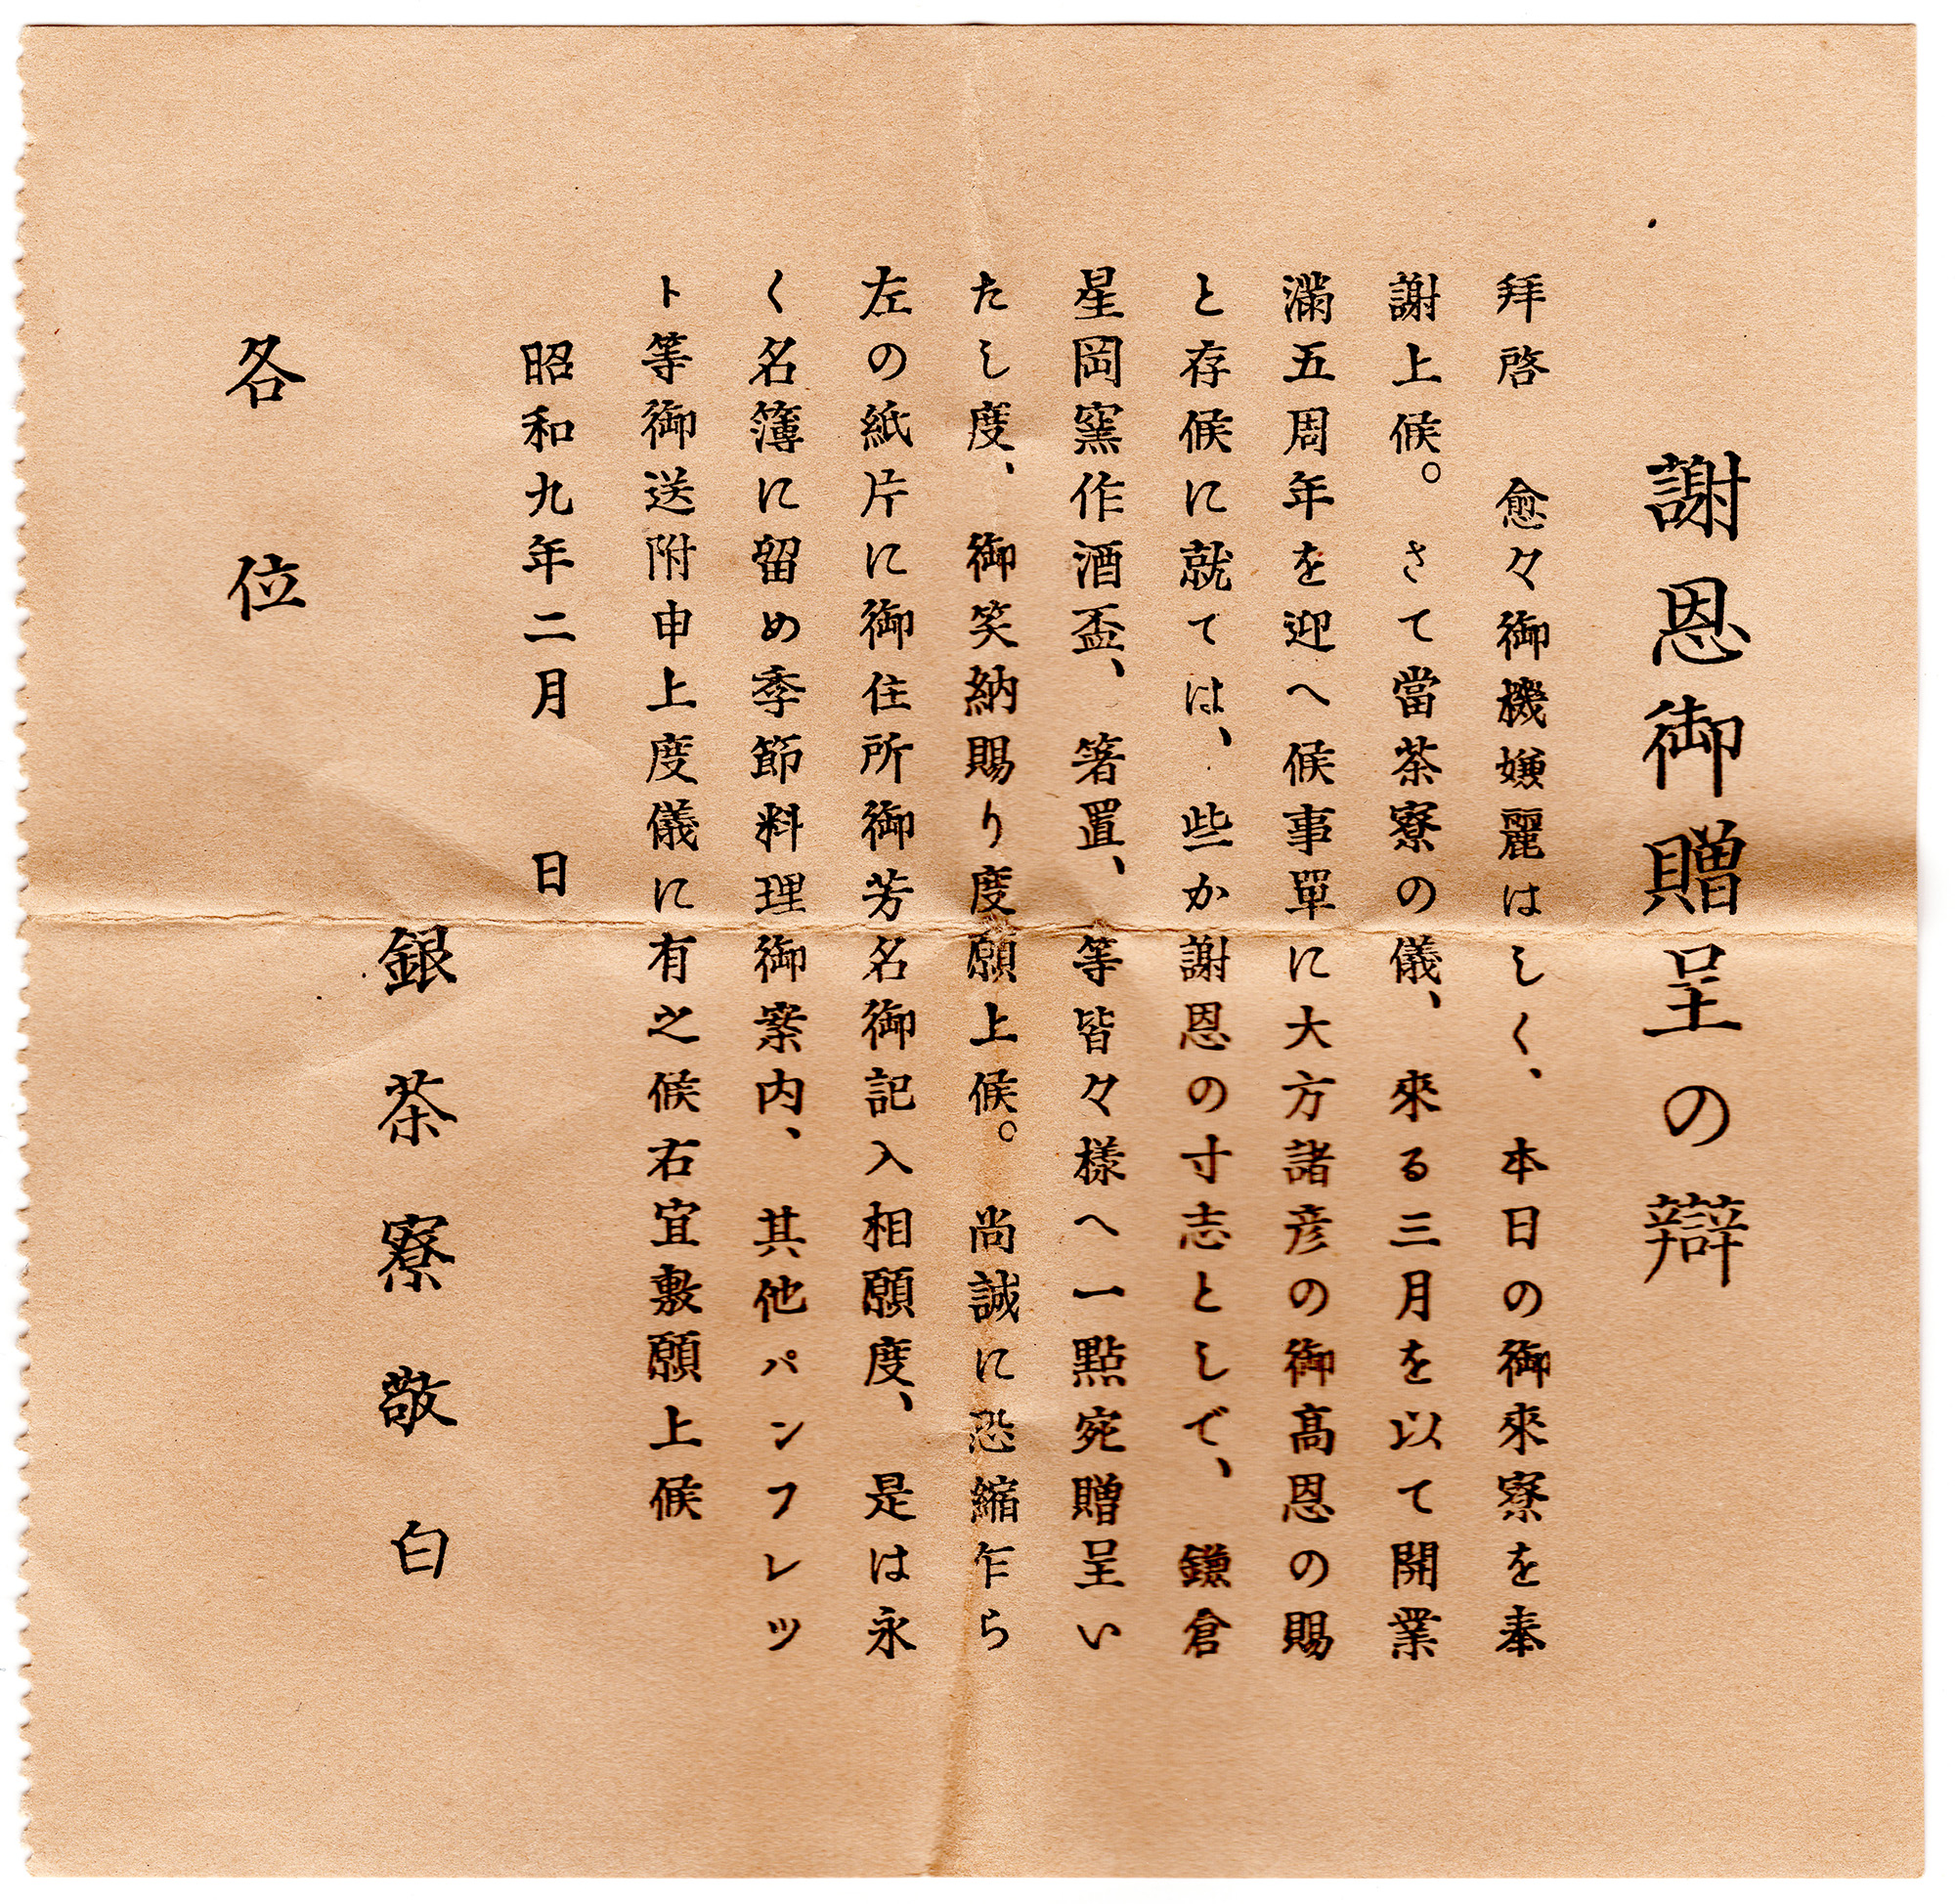 謝恩御贈呈の辯
拜啓　愈々御機嫌麗はしく、本日の御來寮を奉
謝上候。さて當茶寮の儀、來る三月を以て開業
滿五周年を迎へ候事單に大方諸彦の御高恩の賜
と存候に就ては、些か謝恩の寸志としで、鎌倉
星岡窯作酒盃、箸置、等皆々樣へ一點宛贈呈い
たし度、御笑納賜り度願上候。尚誠に恐縮乍ら
左の紙片に御住所御芳名御記入相願度、是は永
く名簿に留め季節料理御案内、其他パンフレツ
ト等御送附申上度儀に有之候右宜敷願上候
昭和九年二月　　日
銀茶寮敬白
各位